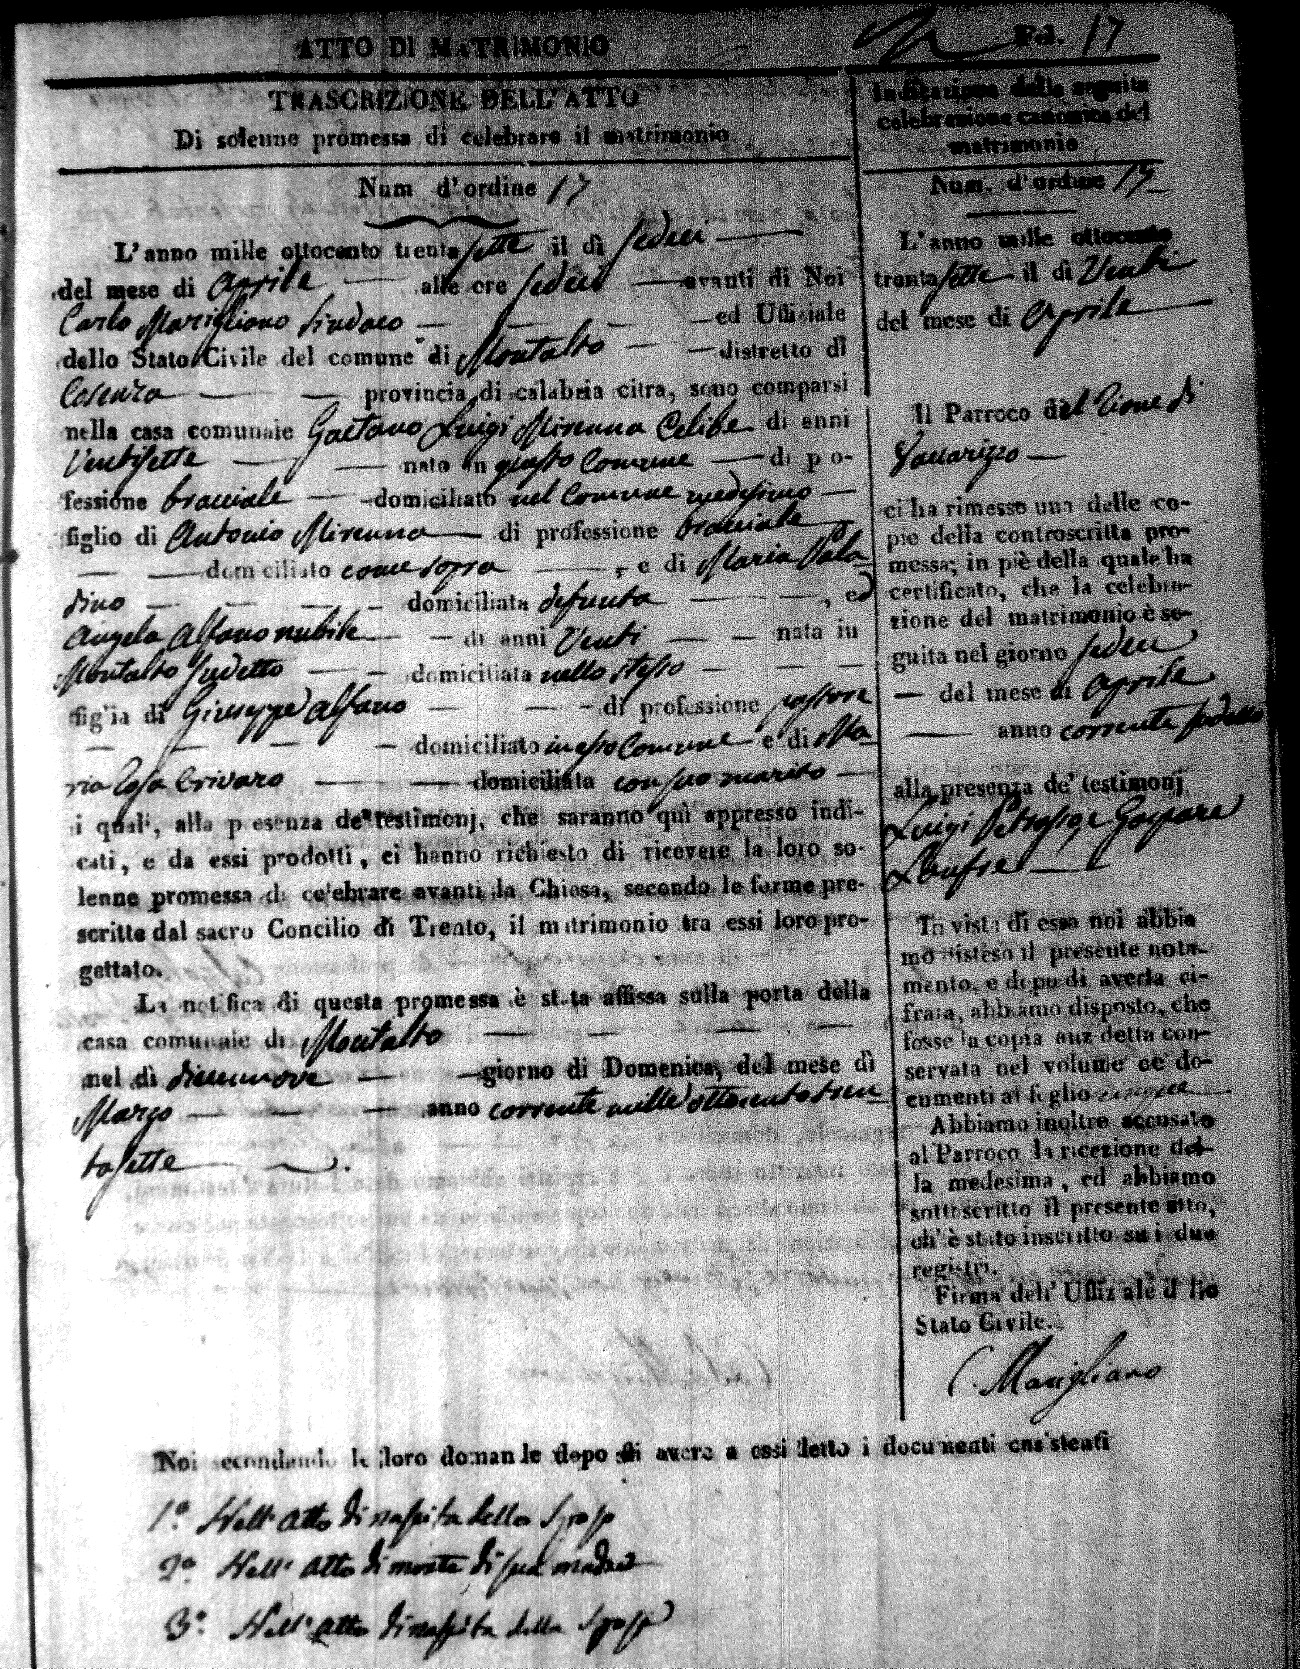 Fol. 17
ATTO DI MATRIMONIO
TRASCRIZIONE DELL'ATTO
Di solenne promessa di celebrare il matrimonio
Num d'ordine 17
L'anno mille ottocento trentasette il dì sedeci
del mese di Aprile alle ore sedeci avanti di Noi
Carlo Marigliano Sindaco ed Uffiziale
dello Stato Civile del comune di Montalto distretto di
Cosenza provincia di calabria citra, sono comparsi
nella casa comunale Gaetano Luigi Mirenna Celibe di anni
Ventisette nato in questo Comune di pro-
fessione bracciale domiciliato nel Comune medesimo
figlio di Antonio Mirenna di professione bracciale
domiciliato come sopra, e di Maria Pala
dino domiciliata defunta, ed
Angela Alfano nubile di anni Venti nata in
Montalto sudetto domiciliata nello stesso
figlia di Giuseppe Alfano di professione
domiciliato in esso Comune e di Ma
ria Rosa Crivaro domiciliata con suo marito
i quali, alla presenza de' testimonj, che saranno quì appresso indi-
cati, e da essi prodotti, ci hanno richiesto di ricevere la loro so-
lenne promessa di celebrare avanti la Chiesa, secondo le forme pre-
scritte dal sacro Concilio di Trento, il matrimonio tra essi loro pro-
gettato.
La notifica di questa promessa è stata affissa sulla porta della
casa comunale di Montalto
nel dì diecinnove giorno di Domenica, del mese di
Marzo anno corrente mille ottocento tren
tasette.
Indicazione della seguita
celebrazione canonica del
matrimonio
Num. d'ordine 17
L'anno mille ottocento
trentasette il dì Venti
del mese di Aprile
Il Parroco del Rione di
Vaccarizzo
ci ha rimesso una delle co-
pie della controscritta pro-
messa, in piè della quale ha
certificato, che la celebra-
zione del matrimonio è se-
guita nel giorno sedeci
del mese di Aprile
anno corrente sudetto
alla presenza de' testimonj
Luigi Petrassi e Gaspare
In vista di essa noi abbia
mo disteso il presente nota-
mento, e dopo di averla ci-
frata, abbiamo disposto, che
fosse la copia anzidetta con-
servata nel volume de' do-
cumenti al foglio
Abbiamo inoltre accusato
al Parroco la ricezione del-
la medesima, ed abbiamo
sottoscritto il presente atto,
ch'è stato inscritto su i due
registri.
Firma dell' Uffiziale dello
Stato Civile.
C. Marigliano
Noi secondando le loro domande dopo di avere a essi letto i documenti consistenti
1.° Nell' atto di nascita dello Sposo
2.° Nell' atto di morte di sua madre
3.° Nell' atto di nascita della Sposa